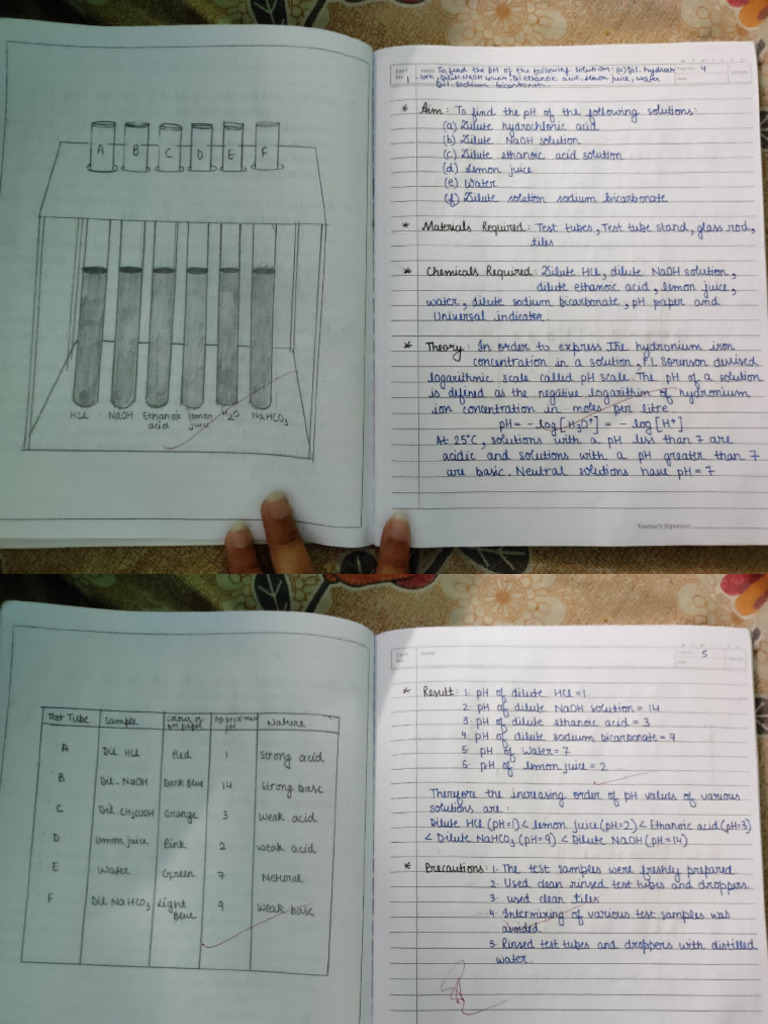 A B C D E F
HCl NaOH Ethanoic acid lemon juice H2O NaHCO3
EXPT. NO. 1 NAME To find the pH of the following solutions: (a) Dil. hydroch
Page No.: 4
Date:
dil. sodium bicarbonate.
* Aim: To find the pH of the following solutions:
(a) Dilute hydrochloric acid.
(b) Dilute NaOH solution
(c) Dilute ethanoic acid solution
(d) Lemon juice
(e) Water
(f) Dilute solution sodium bicarbonate
* Materials Required: Test tubes, Test tube stand, glass rod,
tiles
* Chemicals Required: Dilute HCl, dilute NaOH solution,
dilute ethanoic acid, lemon juice,
water, dilute sodium bicarbonate, pH paper and
Universal indicator.
* Theory: In order to express the hydronium iron
concentration in a solution, P.L Sorenson devised
logarithmic scale called pH scale. The pH of a solution
is defined as the negative logarithim of hydronium
ion concentration in moles per litre.
pH = -log[H3O+] = -log[H+]
At 25°C, solutions with a pH less than 7 are
acidic and solutions with a pH greater than 7
are basic. Neutral solutions have pH = 7
Teacher's Signature
Test Tube Sample Colour of pH paper Approximate pH Nature
A Dil. HCl Red 1 Strong acid
B Dil. NaOH Dark Blue 14 Strong base
C Dil CH3COOH Orange 3 Weak acid
D Lemon juice Pink 2 weak acid
E Water Green 7 Netural
F Dil NaHCO3 Light Blue 9 weak base
EXPT. NO. NAME
Page No.: 5
Date:
* Result: 1. pH of dilute HCl = 1
2. pH of dilute NaOH solution = 14
3. pH of dilute ethanoic acid = 3
4. pH of dilute sodium bicarbonate = 9
5. pH of water = 7
6. pH of lemon juice = 2
Therefore the increasing order of pH values of various
solutions are:
Dilute HCl (pH=1) < lemon juice (pH=2) < Ethanoic acid (pH=3)
< Dilute NaHCO3 (pH=9) < Dilute NaOH (pH=14)
* Precautions: 1. The test samples were freshly prepared
2. Used clean rinsed test tubes and droppers.
3. used clean tiles
4. Intermixing of various test samples was
avoided.
5. Rinsed test tubes and droppers with distilled
water.